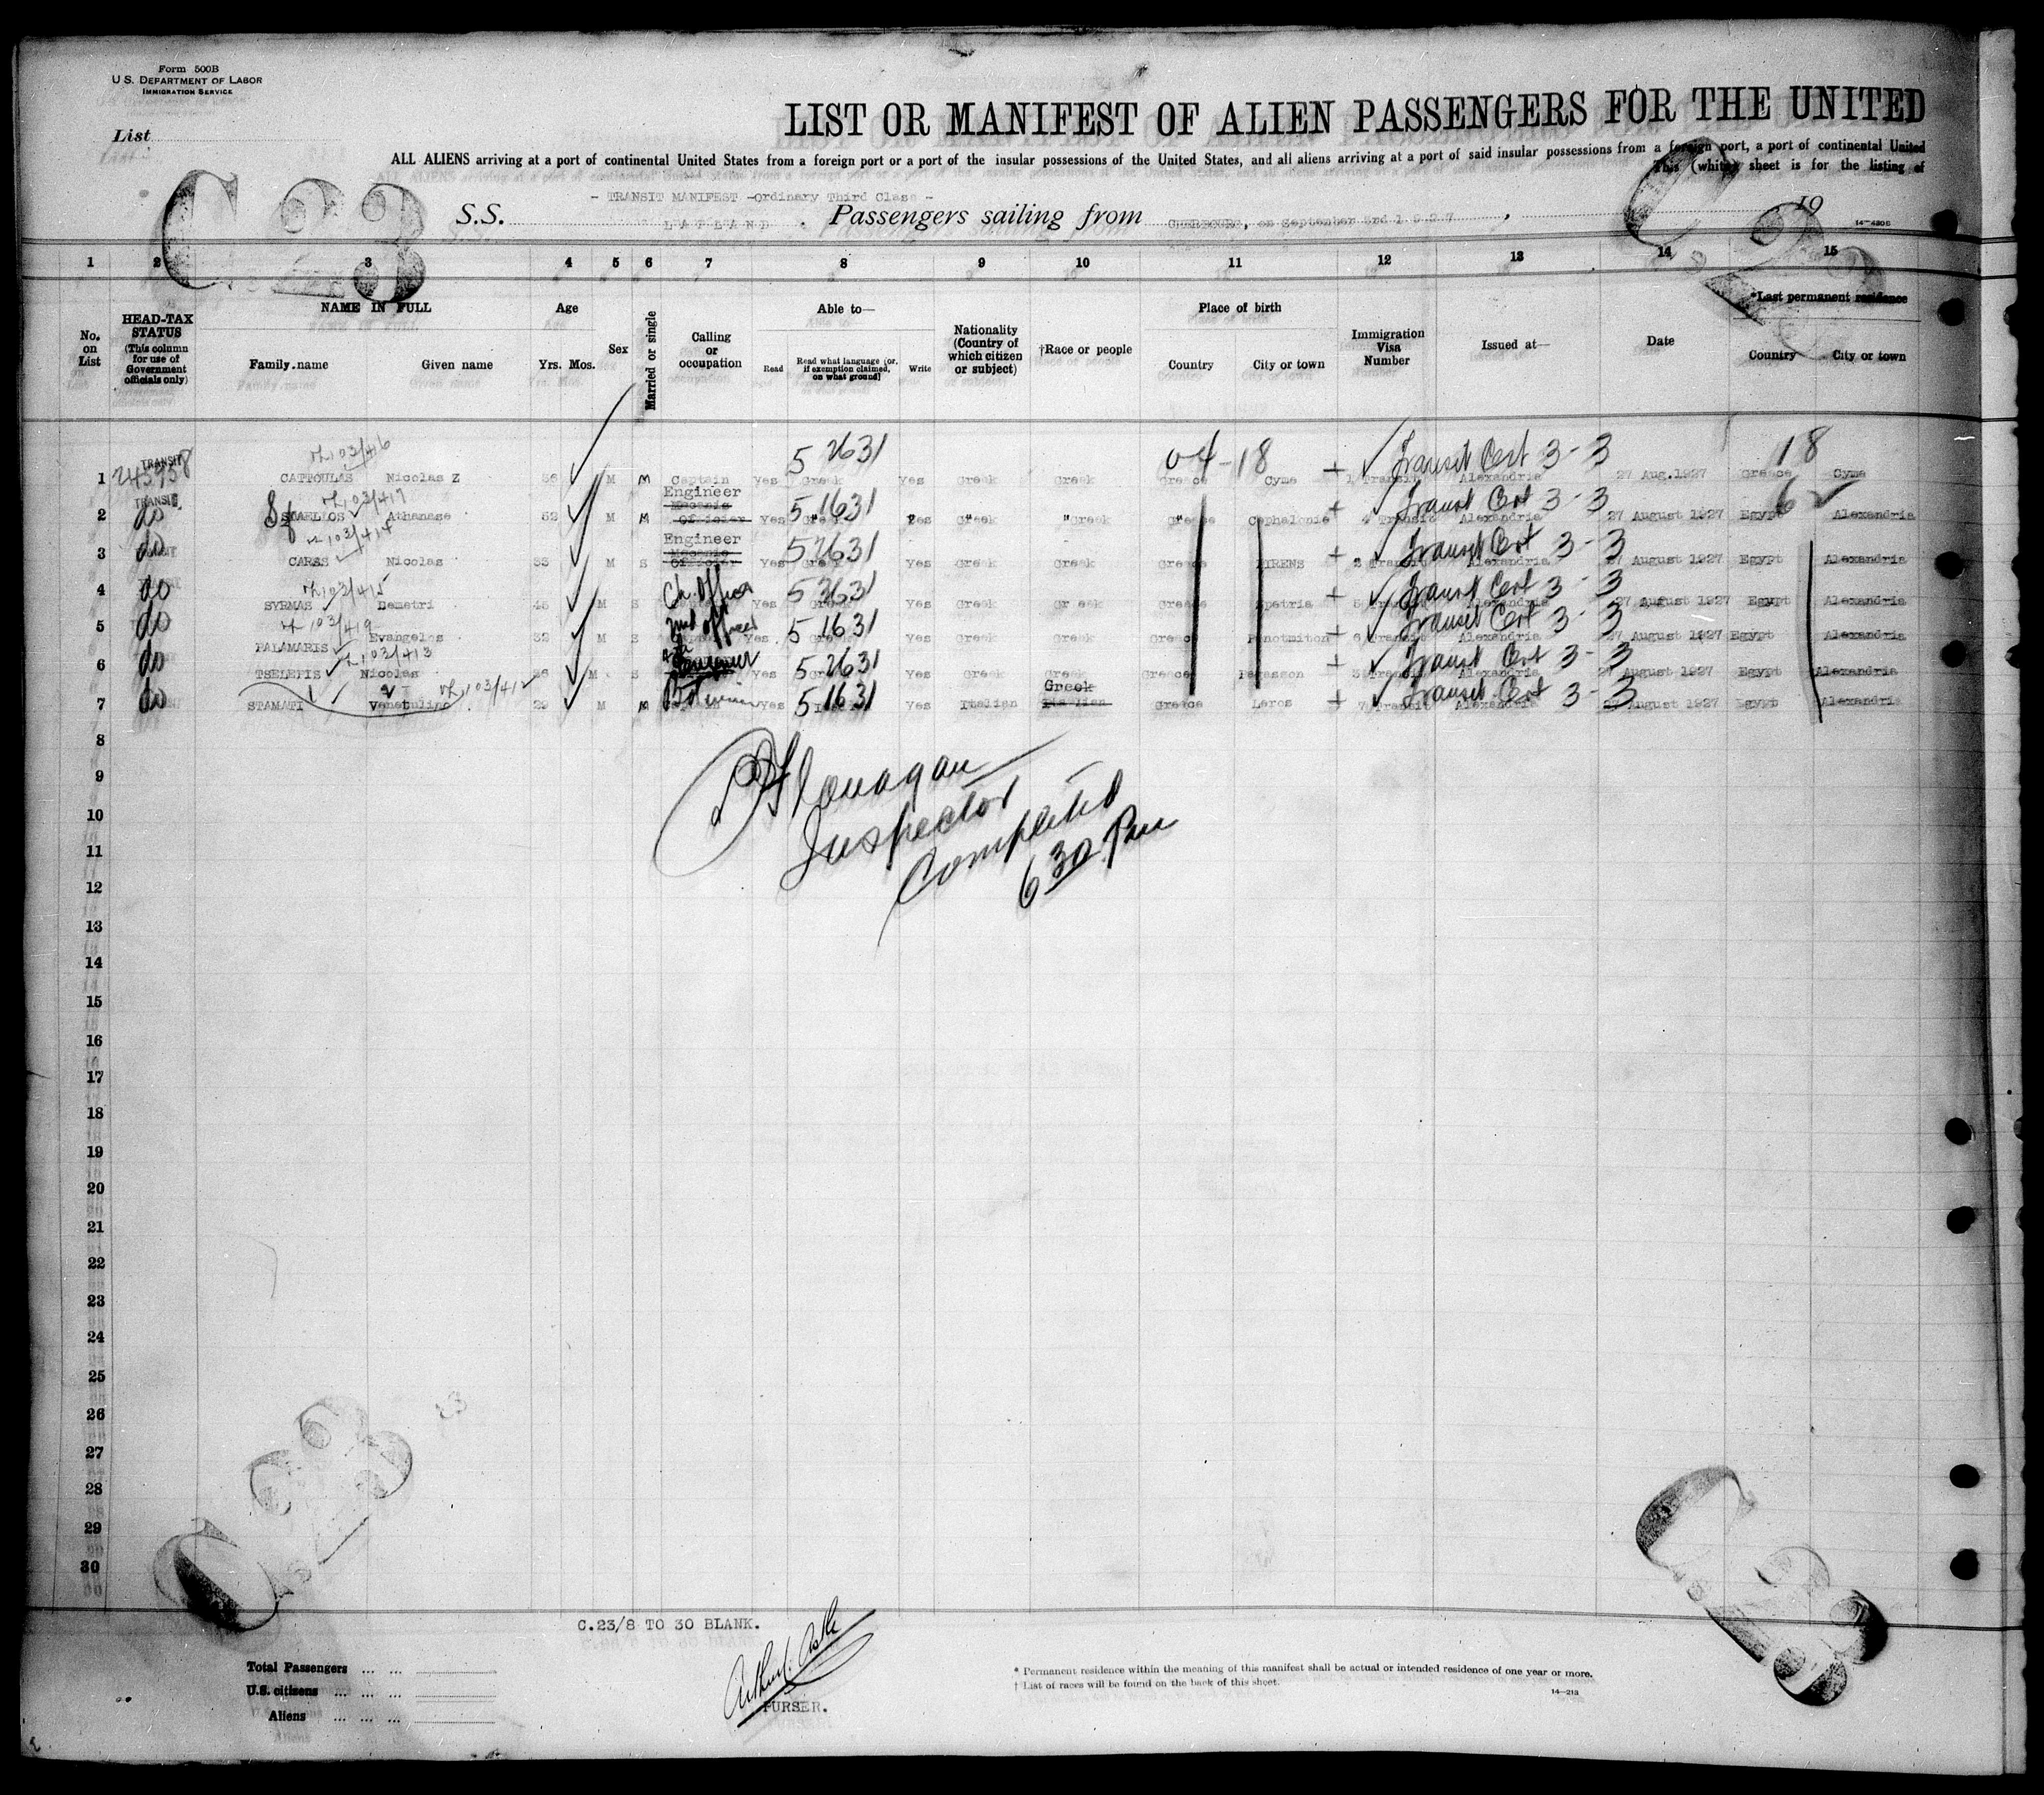 Form 500B
U.S. DEPARTMENT OF LABOR
IMMIGRATION SERVICE
List
LIST OR MANIFEST OF ALIEN PASSENGERS FOR THE UNITED
ALL ALIENS arriving at a port of continental United States from a foreign port or a port of the insular possessions of the United States, and all aliens arriving at a port of said insular possessions from a foreign port, a port of continental United
This (white) sheet is for the listing of
C 23
C 23
- TRANSIT MANIFEST -Ordinary Third Class -
S.S. LAPLAND. Passengers sailing from CHERBOURG, on September 3rd 1927, 19
1 2 3 4 5 6 7 8 9 10 11 12 13 14 15
No. on List
HEAD-TAX STATUS (This column for use of Government officials only)
NAME IN FULL
Family name Given name
Age
Yrs. Mos.
Sex
Married or single
Calling or occupation
Able to—
Read Read what language [or, if exemption claimed, on what ground] Write
Nationality (Country of which citizen or subject)
†Race or people
Place of birth
Country City or town
Immigration Visa Number
Issued at—
Date
*Last permanent residence
Country City or town
103/416 5 2631 04-18 Transit Cert 3-3 18
1 TRANSIT 243958 CATPOULAS Nicolas Z 56 M M Captain Yes Greek Yes Greek Greek Greece Cyme 1 Transit Alexandria 27 Aug.1927 Greece Cyme
103/417 Engineer 5 1631 Transit Cert 3-3 62
2 TRANSIT do Athanase 52 M M Yes Greek Yes Greek Greek Greece Cephalonie Transit Alexandria 27 August 1927 Egypt Alexandria
103/418 Engineer 5 2631 Transit Cert 3-3
3 do CARAS Nicolas 33 M S Yes Greek Yes Greek Greek Greece PIRENS Transit Alexandria 27 August 1927 Egypt Alexandria
103/415 Ch. Officer 5 2631 Transit Cert 3-3
4 do SYRMAS Demetri 45 M S Yes Greek Yes Greek Greek Greece Spatria 5 Transit Alexandria 27 August 1927 Egypt Alexandria
103/419 2nd Officer 5 1631 Transit Cert 3-3
5 do PALAMARIS Evangelos 32 M S Yes Greek Yes Greek Greek Greece 6 Transit Alexandria 27 August 1927 Egypt Alexandria
103/413 5 2631 Transit Cert 3-3
6 do TSELEPIS Nicolas 36 M S Yes Greek Yes Greek Greek Greece Transit Alexandria 27 August 1927 Egypt Alexandria
103/412 5 1631 Greek Transit Cert 3-3
7 do STAMATI Venetulino 29 M M Yes Italian Yes Italian Italian Greece Leros 7 Transit Alexandria 27 August 1927 Egypt Alexandria
8
9
10
11
12
13
14
15
16
17
18
19
20
21
22
23
24
25
26
27
28
29
30
Flanagan
Inspector
Completed
6 30 Pm
C 23
C 23
C.23/8 TO 30 BLANK.
PURSER.
Total Passengers
U.S. citizens
Aliens
* Permanent residence within the meaning of this manifest shall be actual or intended residence of one year or more.
† List of races will be found on the back of this sheet.
14-213